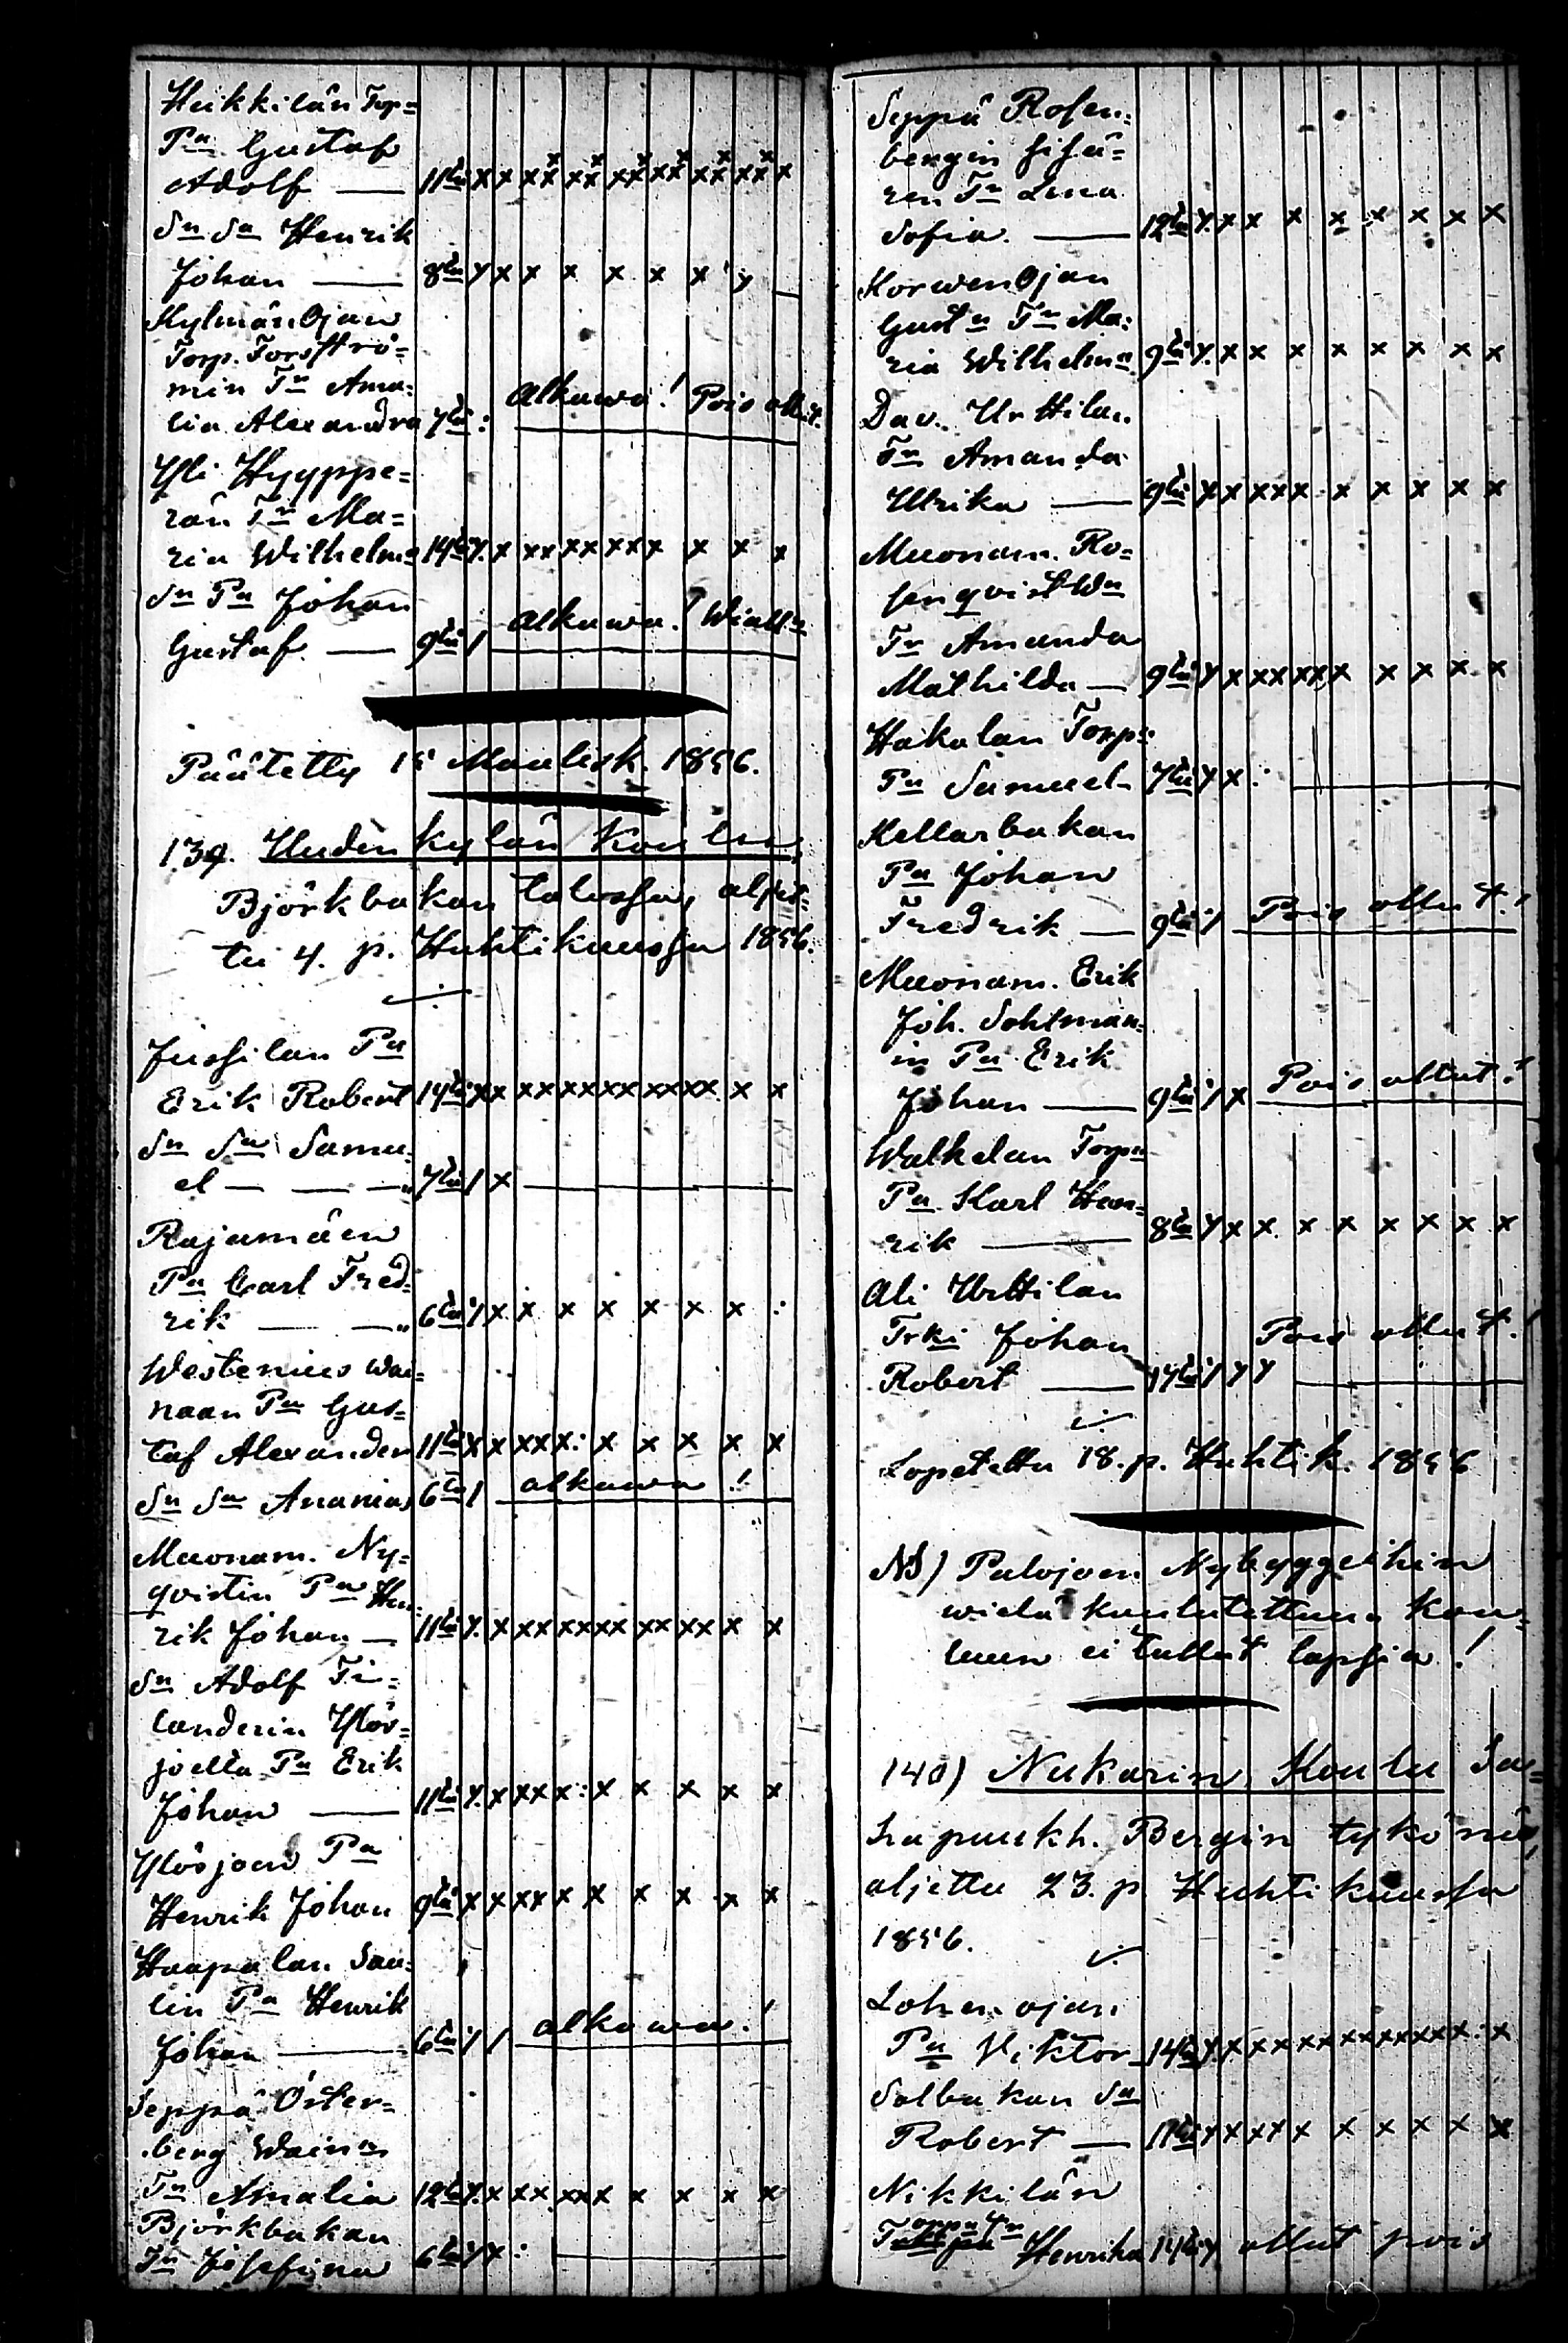 Heikkilän Torp=
Pa Gustaf
Adolf — 11ta x x xx xx xx xx xx xx x
Sn Sa Henrik
Johan — 8ta x x x x x x x x —
KylmänOjan
Torp. Forsströ=
min Tr Ama=
lia Alexandra 7tä : Alkawa! Pois ollut.
Yli Hyyppe=
rän Tr Ma=
ria Wilhelma 14tä x x xx xx xxx x x x
Sn Pa Johan
Gustaf. — 9tä / Alkawa!
Päätetty 15 Maalisk. 1856.
139. Uudenkylän Koulu,
Björkbakan talossa, aljet=
tu 4. p. Huhtikuussa 1856.
Jussilan Pa
Erik Robert 14tä xx xx xx xx xxxx x x
Sn Sa Samu=
el — — — 7tä / x —
Rajamäen
Pa Carl Fred=
rik — — 6ta / x x x x x x x :
Westenius Wai=
naan Pa Gus=
taf Alexander 11ta x x xxx: x x x x x
Sn Sa Ananias 6ta / alkawa!
Muonam. Ny=
qvistin Pa Hen=
rik Johan — 11ta x x xx xxxx xx xx x x
Sn Adolf Ti=
landerin Ylös=
joella Pa Erik
Johan — 11ta x x xxx: x x x x x
Ylösjoen Pa
Henrik Johan 9tä x x xx x x x x x x
Haapalan Saa=
lin Pa Henrik
Johan — 6ta / / alkawa!
Seppä Öster=
berg Wain
Tr Amalia 12ta x x xx xxx x x x x
Björkbakan
Tr Josefiina 6ta x x : —
Seppä Rosen=
bergin sisä=
ren Tr Lena
Sofia. — 12ta x x x x x x x x x
KorwenOjan
Gust Tr Ma=
ria Wilhelma 9tä x x x x x x x x x
Dav. Urttilan
Tr Amanda
Ulrika — 9tä x x xxx x x x x x
Muonam. Ro=
senqvist Wn
Tr Amanda
Mathilda — 9tä x x xx xxx x x x x
Hakalan Torp
Pa Samuel 7tä x x : —
Kellarbakan
Pa Johan
Fredrik — 9tä / Pois ollut!
Muonam. Erik
Joh. Sohlman=
in Pa Erik
Johan — 9tä / x Pois ollut!
Walkelan Torp
Pa Karl Hen=
rik — 8ta x x x x x x x x x
Ali Urttilan
Trki Johan
Robert — 14tä / x x Pois ollut!
Lopetettu 18. p. Huhtik. 1856
NB) Palojoen Nybyggeihin
wielä kuulutettuun kou=
luun ei tullut lapsia!
140) Nukarin Koulu Saa=
puukh. Bergin tykönä,
aljettu 23. p. Huhtikuussa
1856.
Lohenojan
Pa Viktor 14tä x x x x xx xxxxxxx: x
Solbakan Sa
Robert — 11ta x x xxx x x x x x
Nikkilän
Henrika 14tä x ollut pois